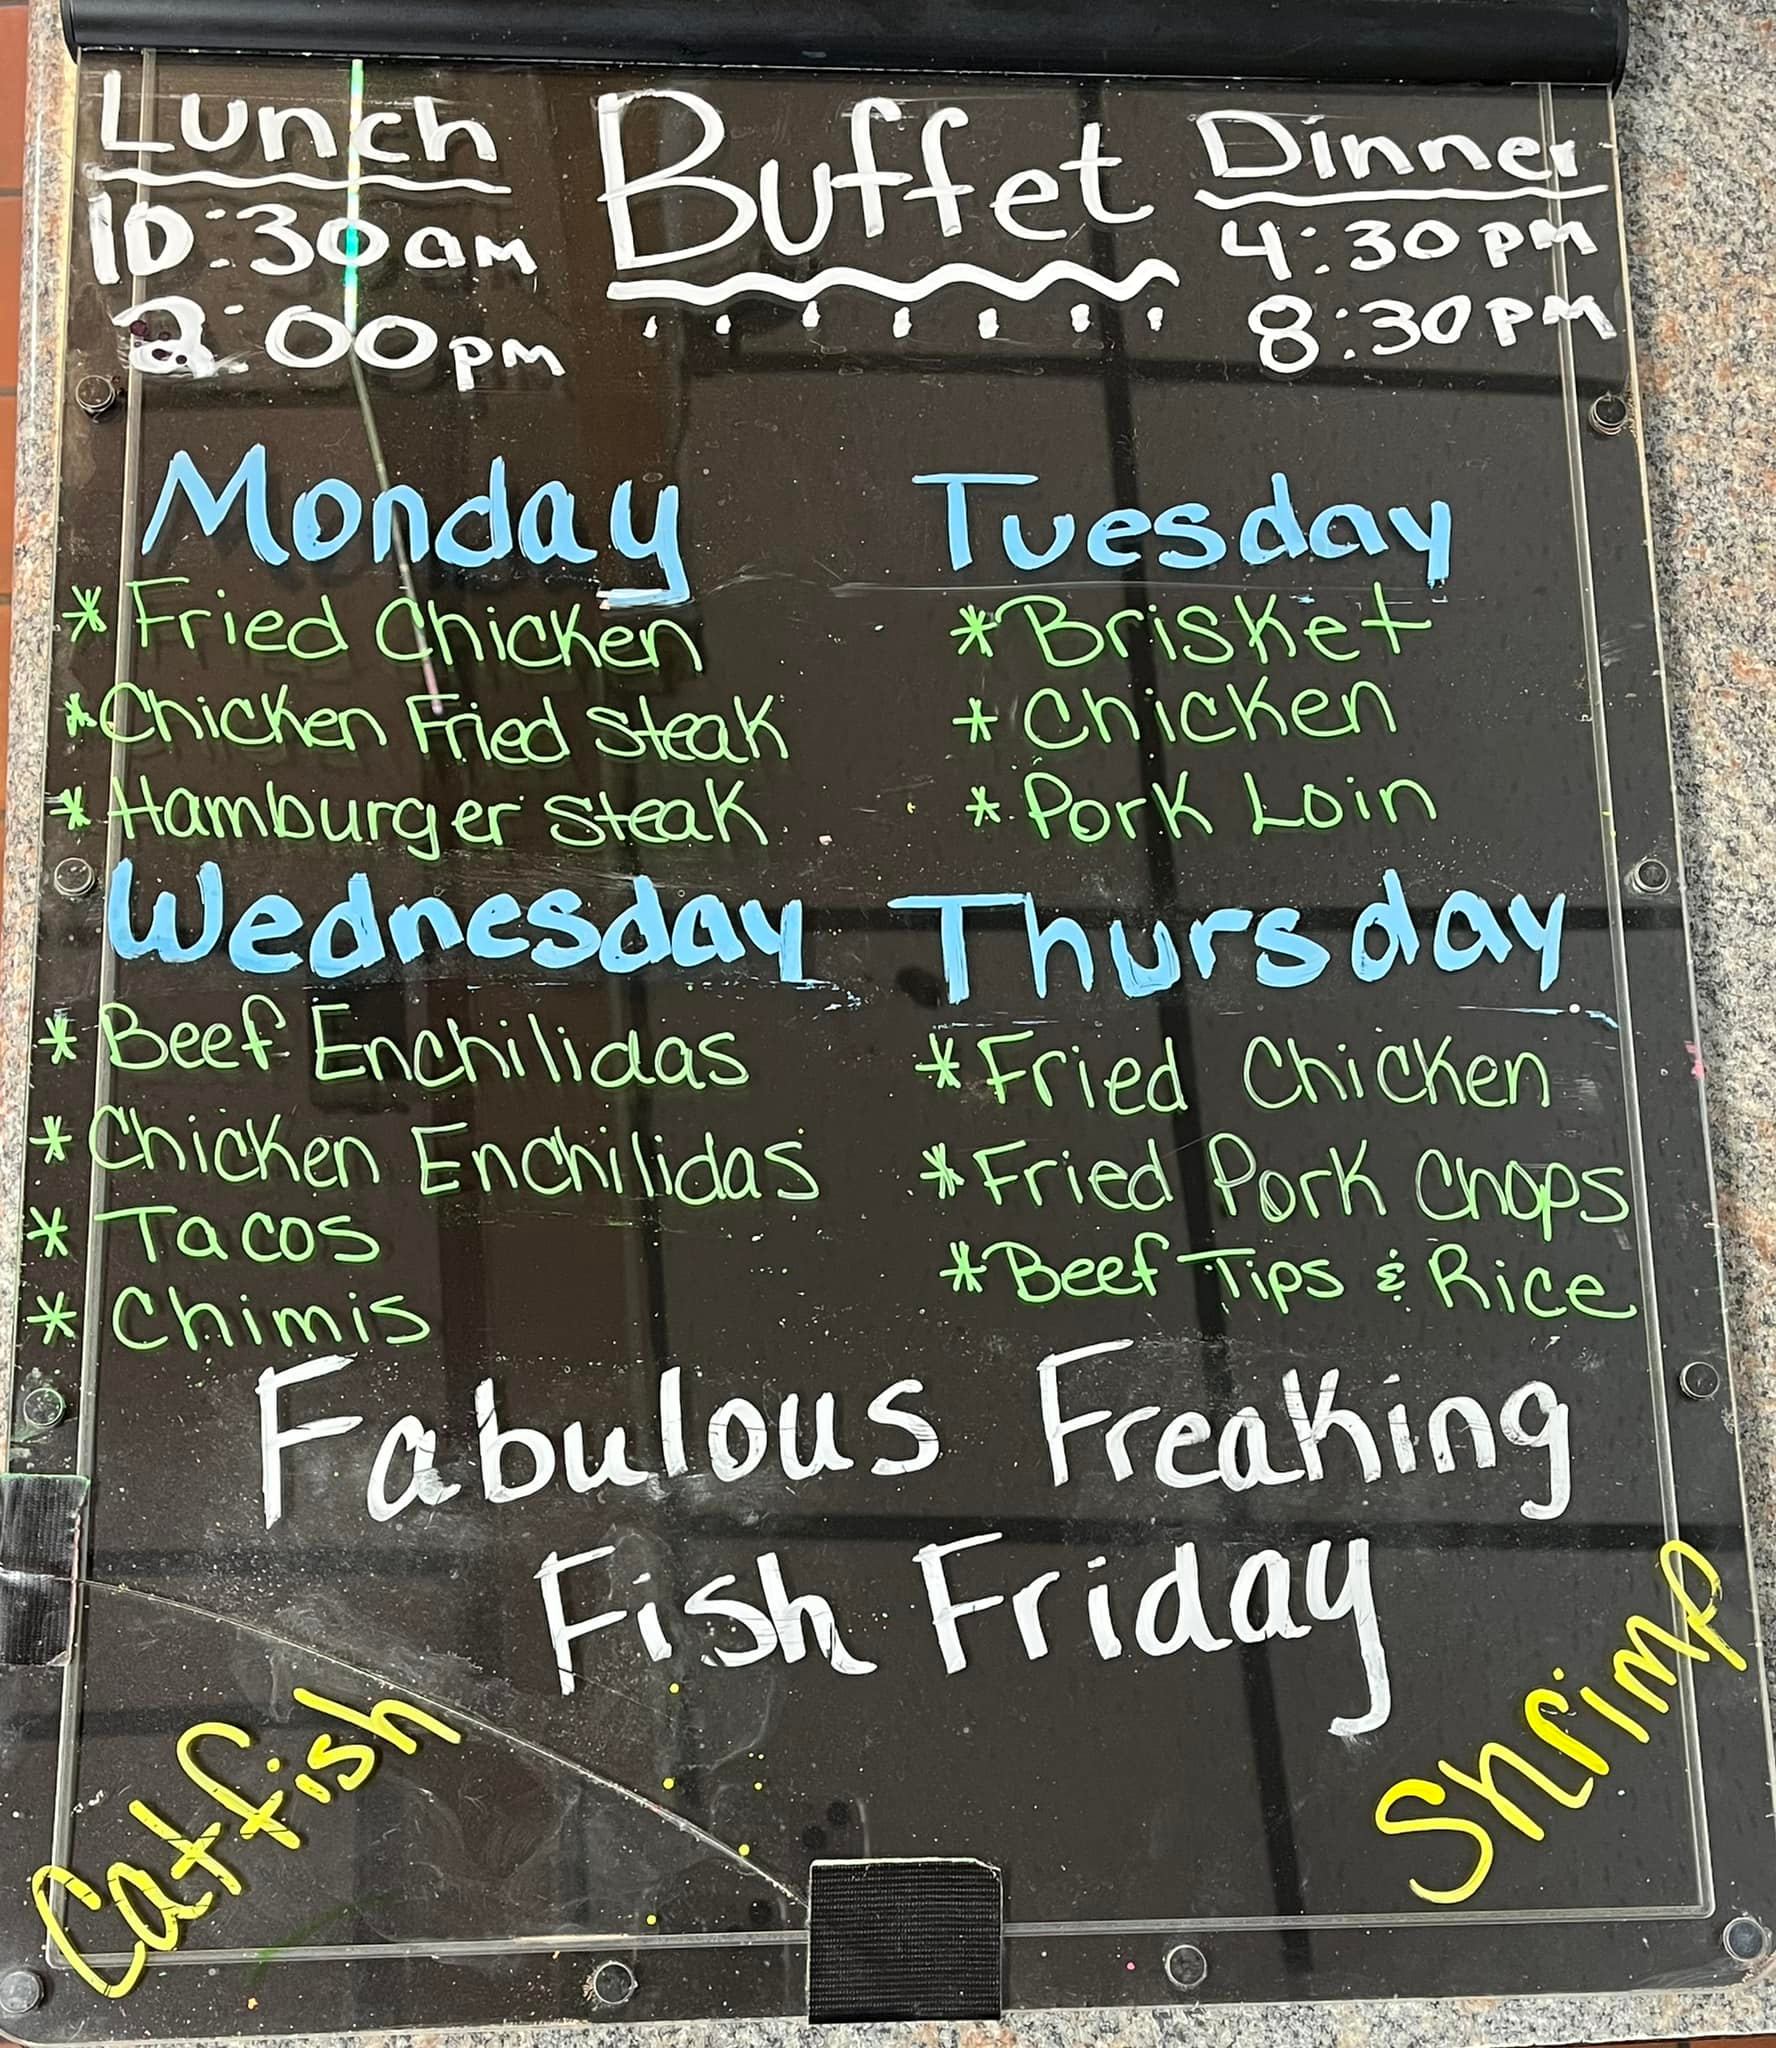 Lunch
10:30am
2:00pm
Buffet
Dinner
4:30pm
8:30pm
Monday
* Fried Chicken
* Chicken Fried Steak
* Hamburger Steak
Tuesday
* Brisket
* Chicken
* Pork Loin
Wednesday
* Beef Enchilidas
* Chicken Enchilidas
* Tacos
* Chimis
Thursday
* Fried Chicken
* Fried Pork Chops
* Beef Tips & Rice
Fabulous Freaking
Fish Friday
Catfish
Shrimp